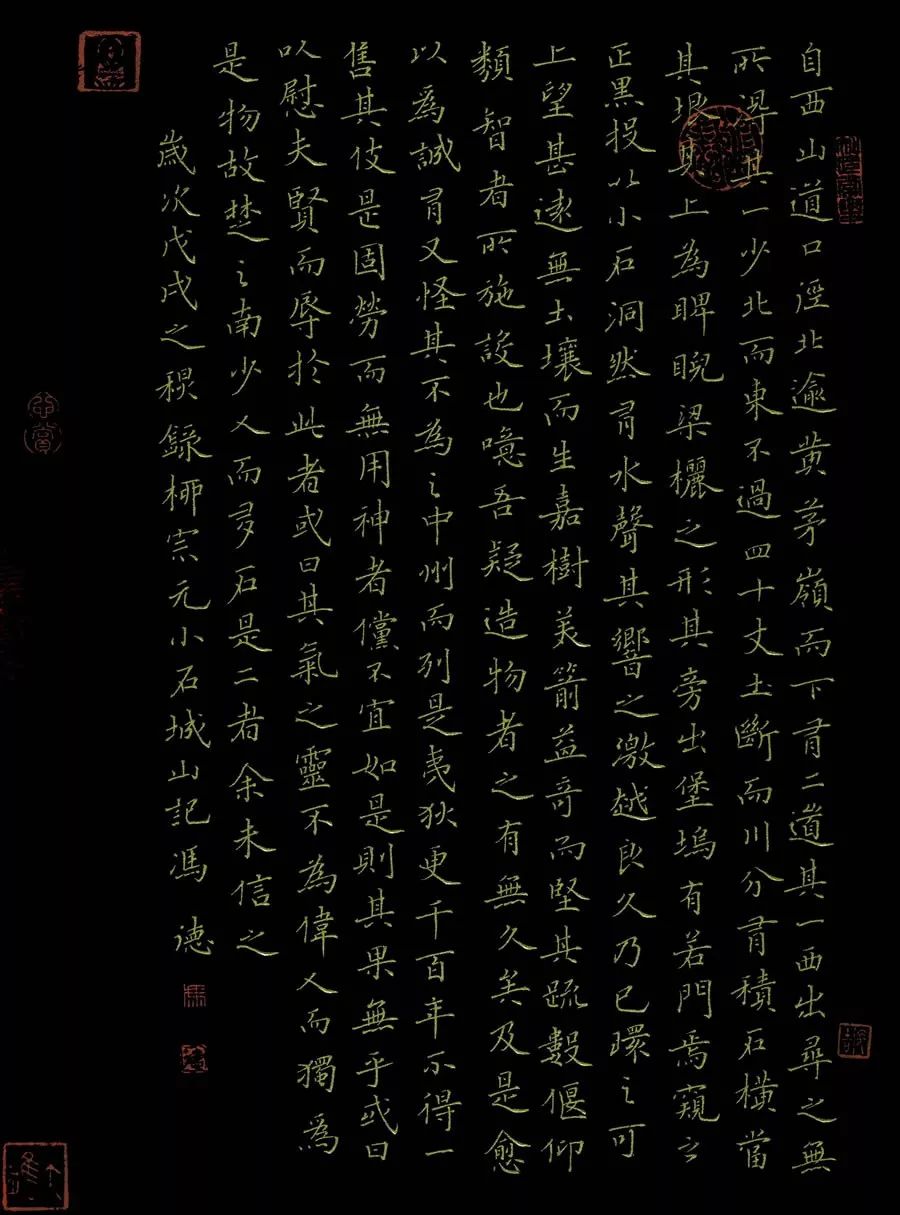 自西山道口涇北逾黄茅嶺而下有二道其一西出尋之無
所得其一少北而東不過四十丈土斷而川分有積石橫當
其垠其上為睥睨梁欐之形其旁出堡塢有若門焉窺之
正黑投以小石洞然有水聲其響之激越良久乃已環之可
上望甚遠無土壤而生嘉樹美箭益奇而堅其疏數偃仰
類智者所施設也噫吾疑造物者之有無久矣及是愈
以為誠有又怪其不為之中州而列是夷狄更千百年不得一
售其伎是固勞而無用神者儻不宜如是則其果無乎或曰
以慰夫賢而辱於此者或曰其氣之靈不為偉人而獨為
是物故楚之南少人而多石是二者余未信之
歲次戊戌之秋錄柳宗元小石城山記馮德